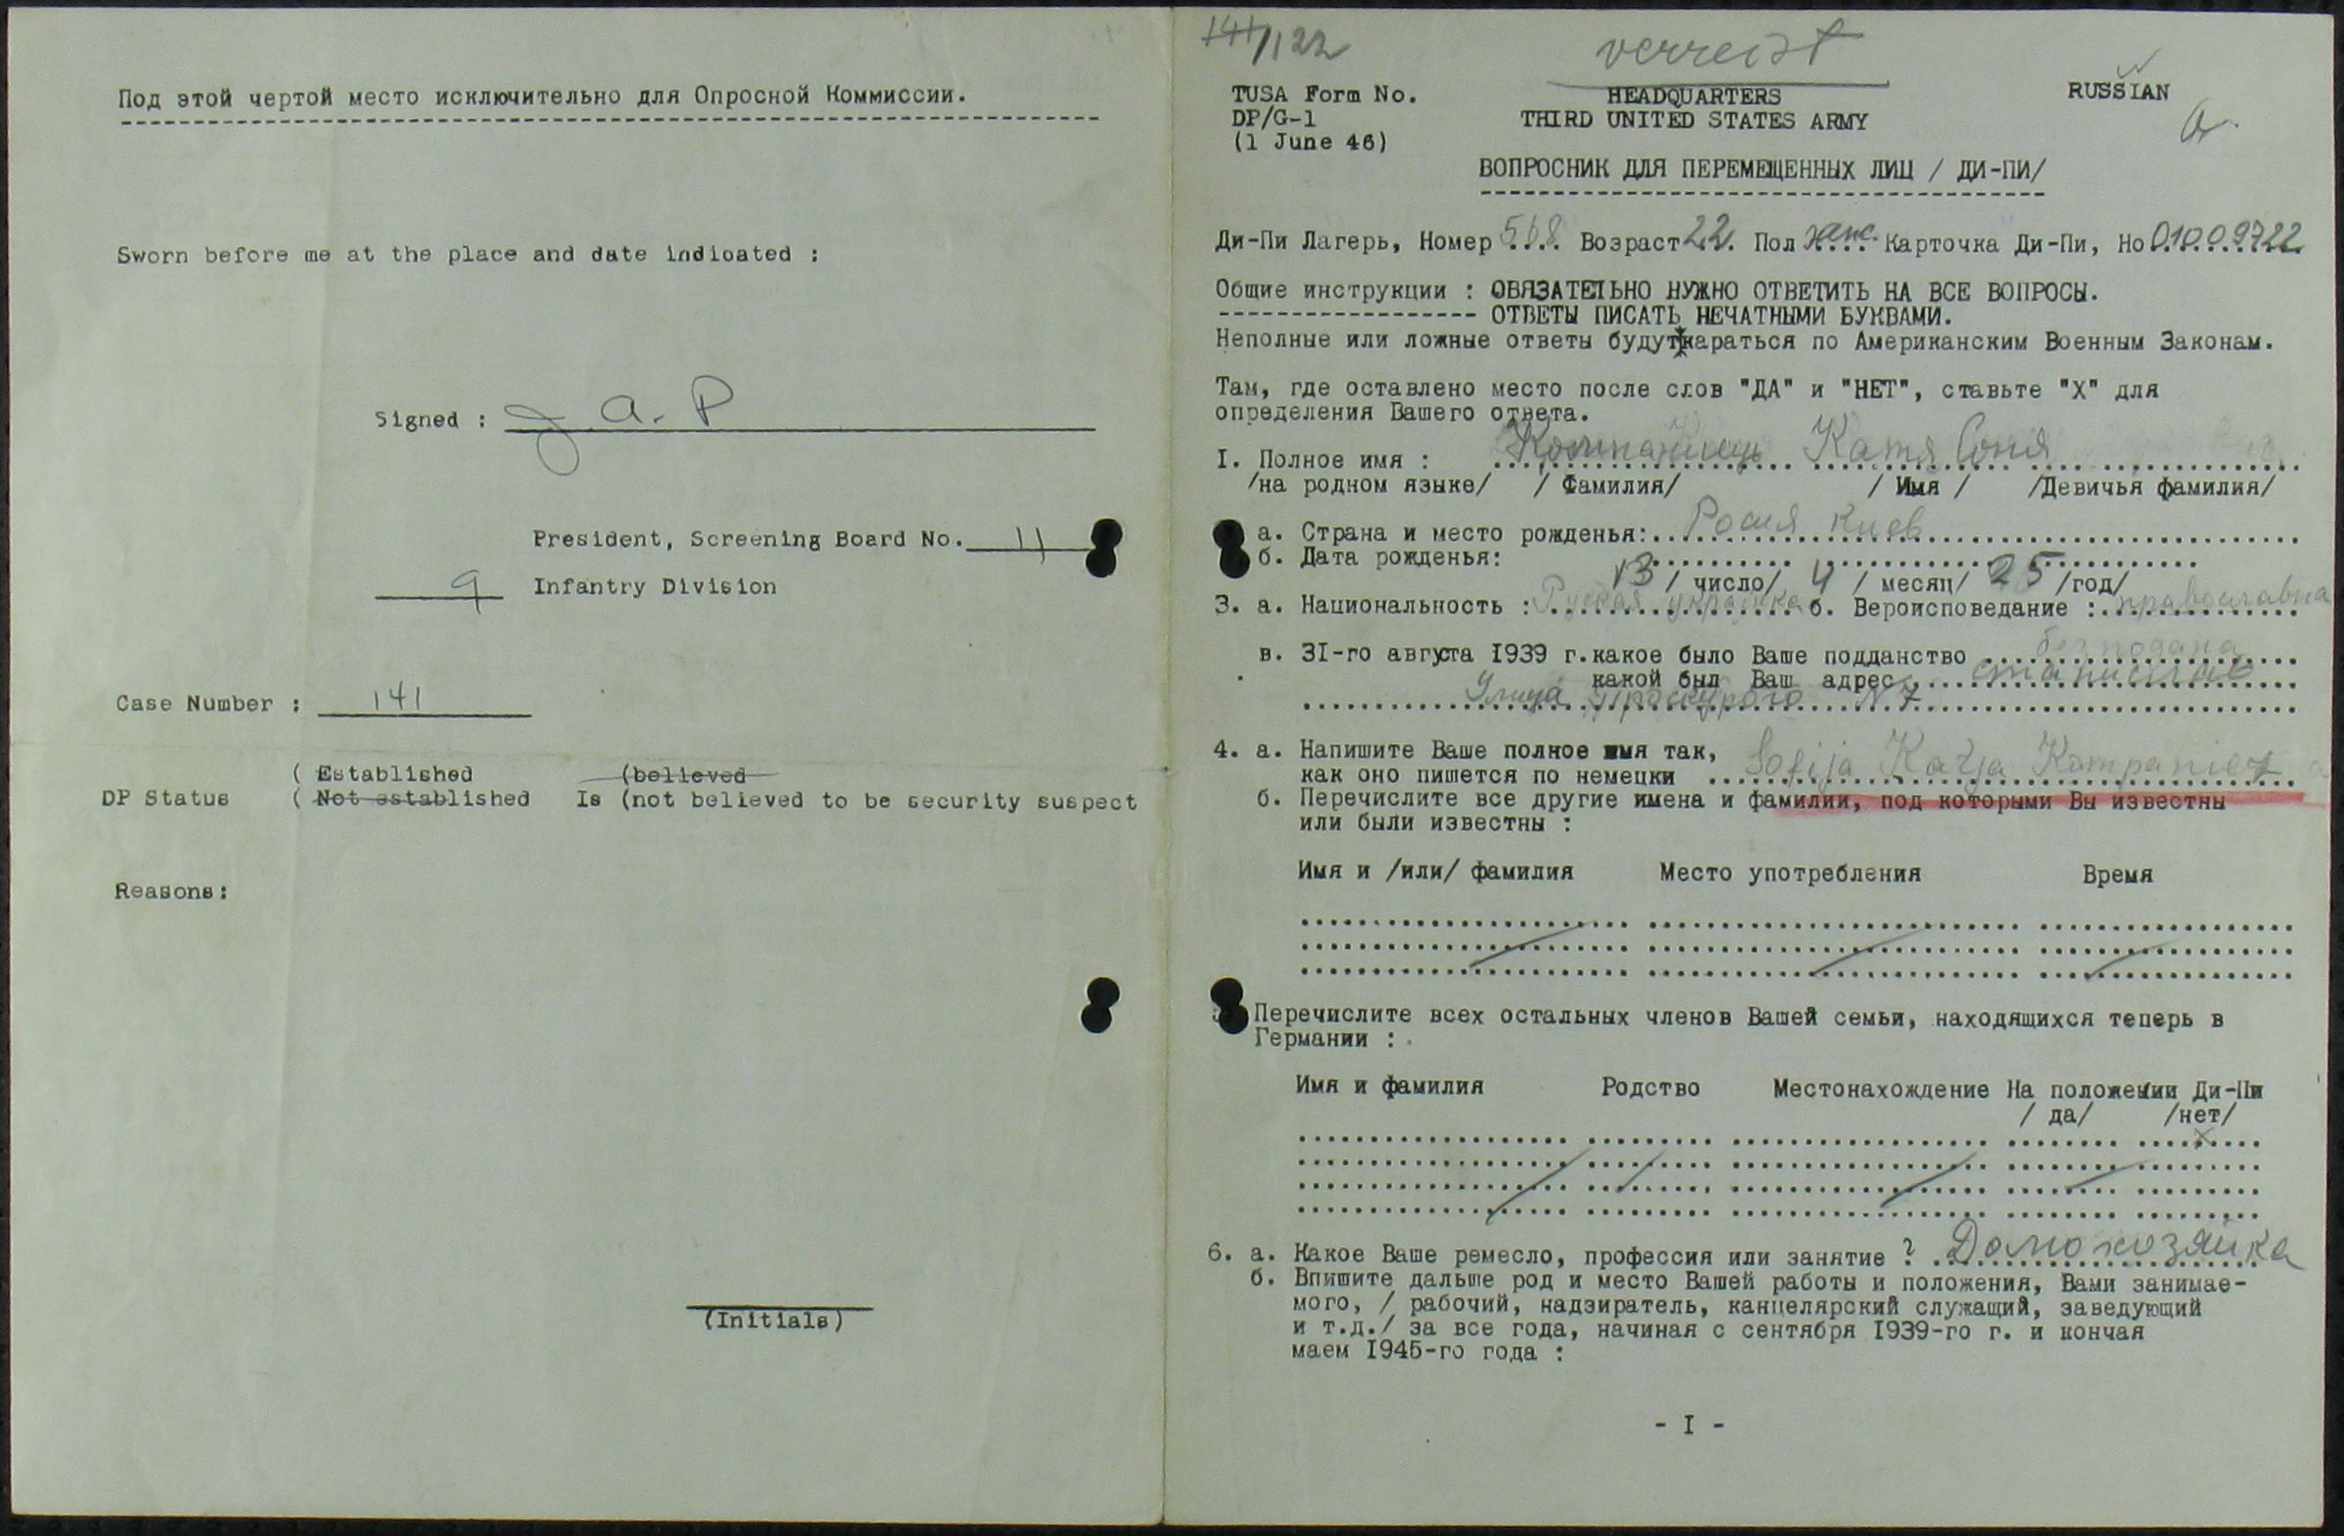 Под этой чертой место исключительно для Опросной Коммиссии.
Sworn before me at the place and date indicated :
Signed : J. A. P
President, Screening Board No. 11
9 Infantry Division
Case Number : 141
( Established (believed
DP Status ( Not established Is (not believed to be security suspect
Reasons:
(Initials)
141/122 verreist
TUSA Form No. HEADQUARTERS RUSSIAN
DP/G-1 THIRD UNITED STATES ARMY
(1 June 46)
ВОПРОСНИК ДЛЯ ПЕРЕМЕЩЕННЫХ ЛИЦ / ДИ-ПИ/
Ди-Пи Лагерь, Номер 568 Возраст 22 Пол женс. Карточка Ди-Пи, Но 01009722
Общие инструкции : ОБЯЗАТЕЛЬНО НУЖНО ОТВЕТИТЬ НА ВСЕ ВОПРОСЫ.
ОТВЕТЫ ПИСАТЬ НЕЧАТНЫМИ БУКВАМИ.
Неполные или ложные ответы будут караться по Американским Военным Законам.
Там, где оставлено место после слов "ДА" и "НЕТ", ставьте "X" для
определения Вашего ответа.
I. Полное имя : Компаниец Катя Соня
/на родном языке/ / Фамилия/ / Имя / /Девичья фамилия/
а. Страна и место рожденья: Росия Киев
б. Дата рожденья:
13 / число/ 4 / месяц/ 25 /год/
3. а. Национальность : Руская украинка б. Вероисповедание : православна
в. 31-го августа 1939 г. какое было Ваше подданство безподана
какой был Ваш адрес Станислав
Улица N. 7
4. а. Напишите Ваше полное имя так,
как оно пишется по немецки Sofija Katja Kompaniez
б. Перечислите все другие имена и фамилии, под которыми Вы известны
или были известны :
Имя и /или/ фамилия Место употребления Время
Перечислите всех остальных членов Вашей семьи, находящихся теперь в
Германии :
Имя и фамилия Родство Местонахождение На положении Ди-Пи
/ да/ /нет/
x
6. а. Какое Ваше ремесло, профессия или занятие ? Домохозяйка
б. Впишите дальше род и место Вашей работы и положения, Вами занимае-
мого, / рабочий, надзиратель, канцелярский служащий, заведующий
и т.д./ за все года, начиная с сентября 1939-го г. и кончая
маем 1945-го года :
- I -